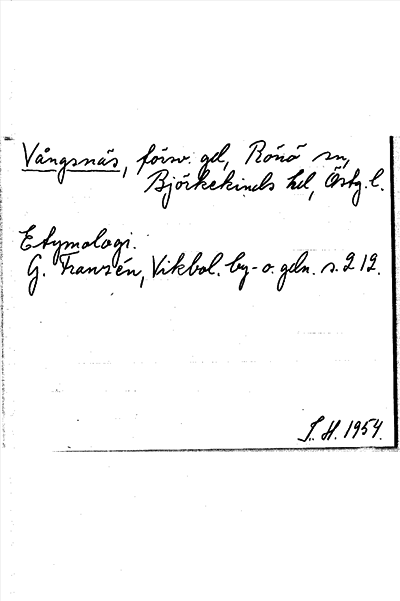 Vångsnäs, försv. gd, Rönö sn,
Björkekinds hd, Östg. l.
Etymologi.
G. Franzén, Vikbol. by- o. gdn. s. 212.
I. H. 1954.